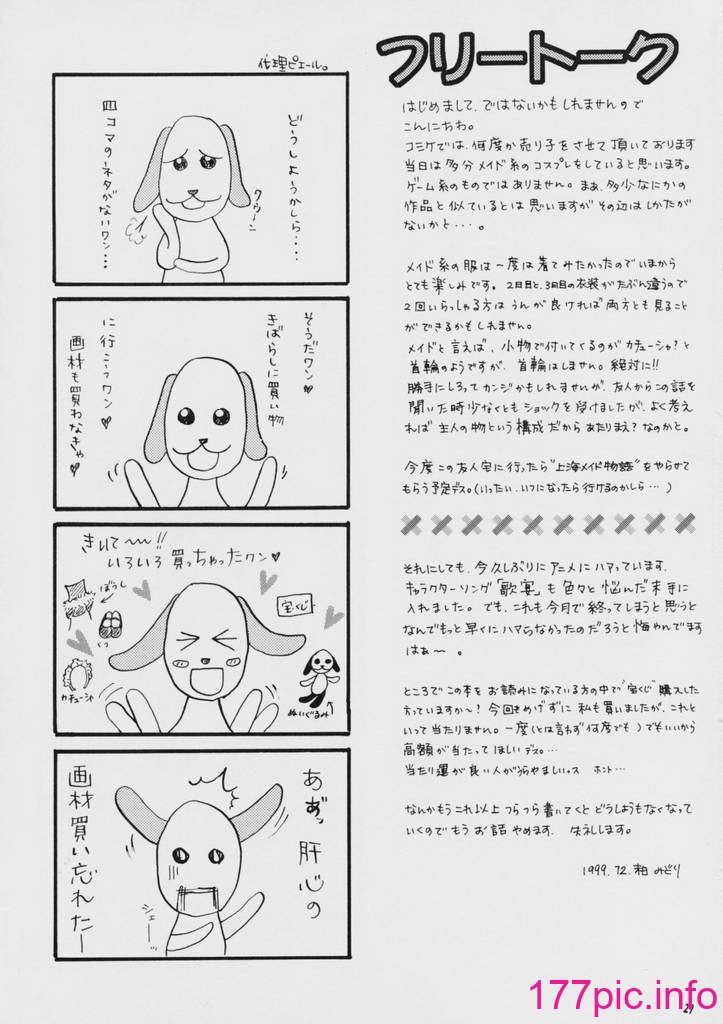 フリートーク
はじめまして、ではないかもしれませんので
こんにちわ。
コミケでは、何度か売り子をさせて頂いております
当日は多分メイド系のコスプレをしていると思います。
ゲーム系のものではありません。まぁ、多少なにかの
作品と似ているとは思いますがその辺はしかたが
ないかと・・・。
メイド系の服は一度は着てみたかったのでいまから
とても楽しみです。2日目と、3日目の衣装がたぶん違うので
2回いらっしゃる方はうんが良ければ両方とも見ること
ができるかもしれません。
メイドと言えば、小物で付いてくるのがカチューシャ?と
首輪のようですが、首輪はしません。絶対に!!
勝手にしろってカンジかもしれませんが、友人からこの話を
聞いた時少なくともショックを受けましたが、よく考え
れば主人の物という構成だからあたりまえ?なのかと。
今度この友人宅に行ったら"上海メイド物語"をやらせて
もらう予定デス。(いったい、いつになったら行けるのかしら…)
それにしても、今久しぶりにアニメにハマっています。
キャラクターソング「歌宴」も色々と悩んだ末手に
入れました。でも、これも今月で終ってしまうと思うと
なんでもっと早くにハマらなかったのだろうと悔やんでます
はぁ〜 。
ところでこの本をお読みになっている方の中で"宝くじ"購入した
方っていますか〜?今回もめげずに私も買いましたが、これと
いって当たりません。一度(とは言わず何度でも)でもいいから
高額が当たってほしいデス。…
当たり運が良い人がうらやましいっス ホント…
なんかもうこれ以上つらつら書いてくとどうしようもなくなって
いくのでもうお話やめます。失礼します。
1999.12.柏 みどり
代理ピエール。
どうしようかしら・・・
四コマのネタがないワン・・・
クゥ〜ン
そうだワン♡
きばらしに買い物
に行こうワン♡
画材も買わなきゃ♡
きいて〜〜!!
いろいろ買っちゃったワン♡
ぼうし
くつ
カチューシャ
宝くじ
ぬいぐるみ
あぁッ
肝心の
画材買い忘れたー
シェーッ
177pic.info
29